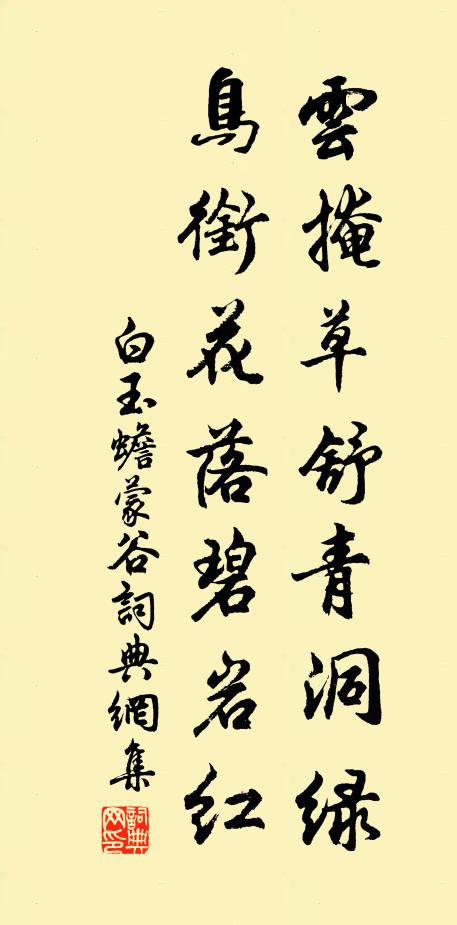 雲掩草舒青洞綠
鳥銜花落碧岩紅
白玉蟾蒙谷詞典網集
詞典網印